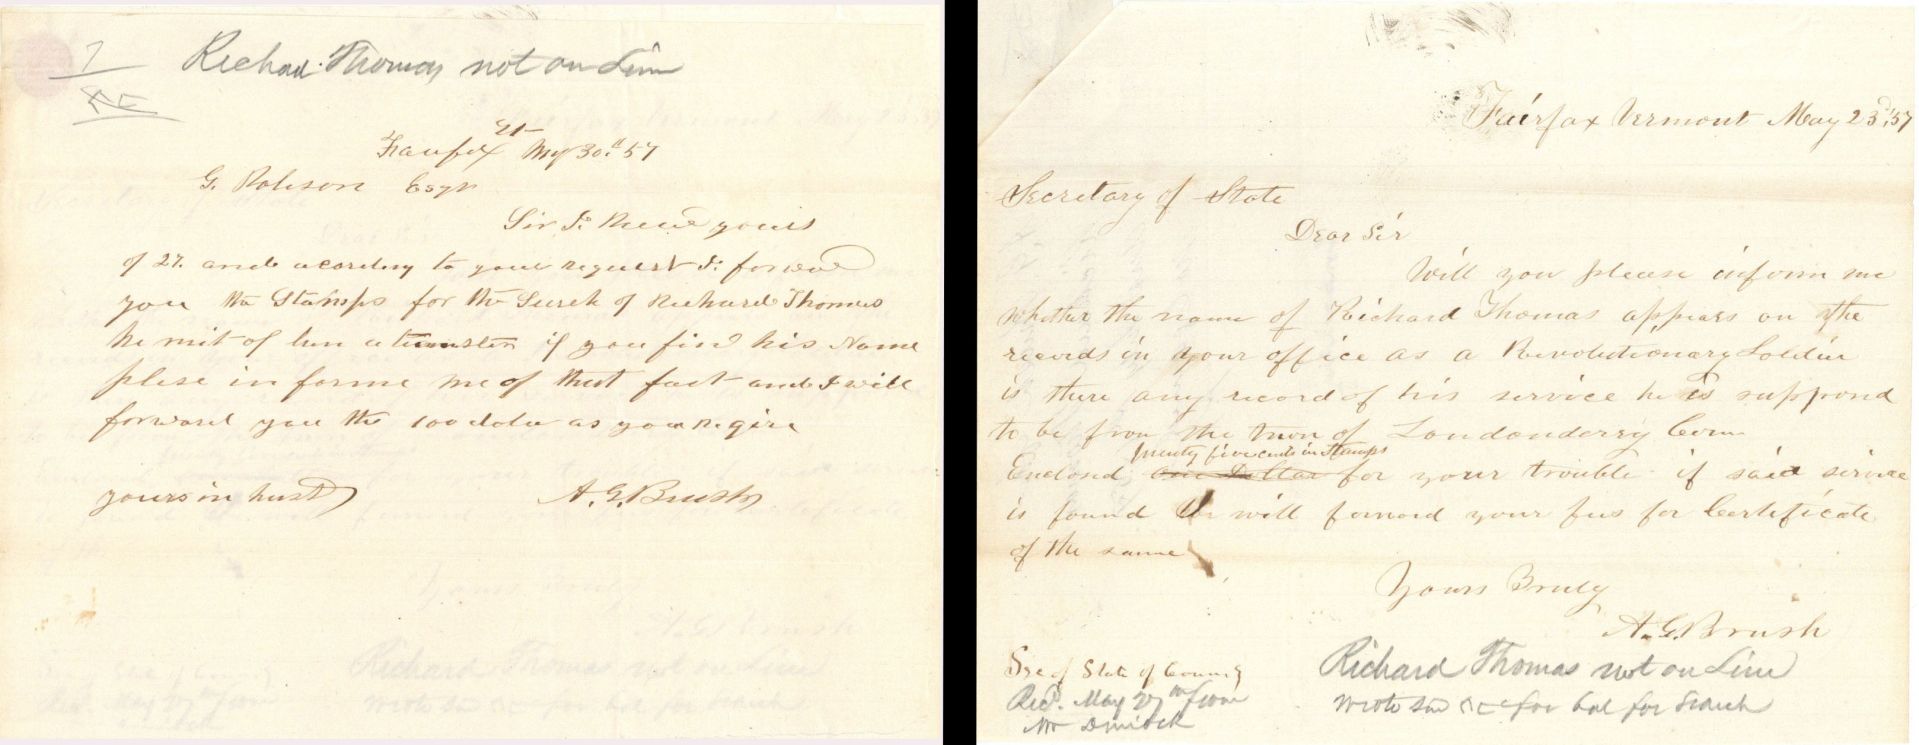 7
Richard Thomas not on Line
Fairfax Vt My 30th 57
G. Robison Esqr
Sir I Received yours
of 27. and acording to your request I forward
you the Stamps for the Serch of Richard Thomas
if you find his Name
plese in forme me of that fact and I will
forward you the 100 dolar as you reqire
yours in hast
A. G. Brush
Fairfax Vermont May 23d. 57
Secretary of State
Dear Sir
Will you please inform me
whether the name of Richard Thomas appears on the
records in your office as a Revolutionary Soldier
is there any record of his service he is supposed
to be from the town of Londonderry Conn
twenty five cents in Stamps
Enclosed one Dollar for your trouble if said service
is found will forward your fees for Certificate
of the same
Yours Truly
A. G. Brush
Sec of State of County
Recd. May 27th from
Mr Dimock
Richard Thomas not on Line
Wrote for bal for Search